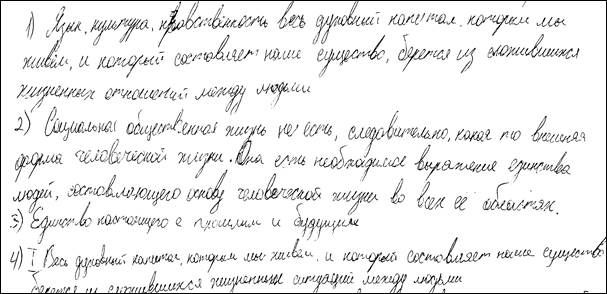 1) Язык, культура, нравственность весь духовный капитал, которым мы
живём, и который составляет наше существо, берется из сложившихся
жизненных отношений между людьми
2) Социальная общественная жизнь не есть, следовательно, какая то внешняя
форма человеческой жизни. Она есть необходимое выражение единства
людей, составляющего основу человеческой жизни во всех её областях.
3) Единство настоящего с прошлым и будущим
4) I Весь духовный капитал, которым мы живем, и который составляет наше существо
берется из сложившихся жизненных ситуаций между людьми